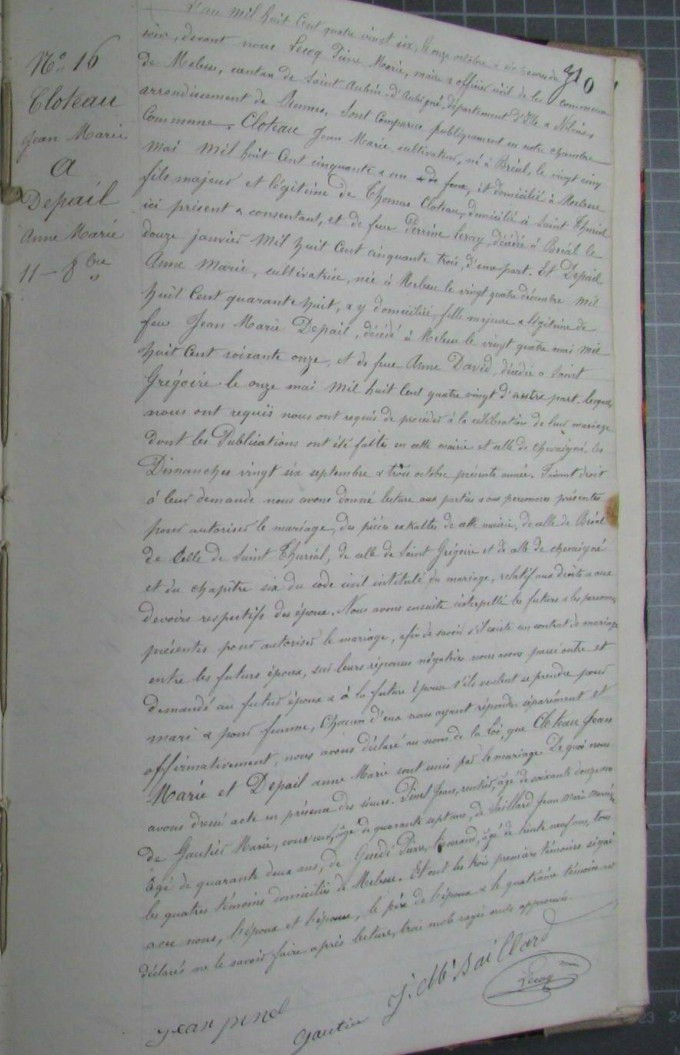 N° 16
Cloteau
Jean Marie
A
Depail
Anne Marie
11 - 8bre
10
L'an mil huit Cent quatre vingt six, le onze octobre a six heures du
soir, devant nous Lecoq Pierre Marie, maire & officier civil de la commune
de Melesse, canton de Saint Aubin d'Aubigné, département d'Ille & Vilaine,
arrondissement de Rennes. Sont comparus publiquement en notre chambre
Commune. Cloteau Jean Marie, cultivateur, né à Bréal, le vingt cinq
mai mil huit Cent cinquante & un et domicilié à Melesse
fils majeur et légitime de Thomas Cloteau, domicilié à Saint Thurial
ici présent & consentant, et de feue Perrine Leray, décédée à Bréal le
douze janvier Mil huit Cent cinquante trois, d'une part. Et Depail
Anne Marie, cultivatrice, née à Melesse le vingt quatre décembre mil
huit Cent quarante huit, & y domiciliée, fille majeure & légitime de
feu Jean Marie Depail, décédé à Melesse le vingt quatre mai mil
huit Cent soixante onze, et de feue Anne David, décédée à Saint
Grégoire le onze mai Mil huit Cent quatre vingt d'autre part. lesquels
nous ont requis nous ont requis de procéder à la célébration de leur mariage
dont les Publications ont été faites en cette mairie et celle de chevaigné, les
Dimanches vingt six septembre & trois octobre présente année. Faisant droit
à leur demande nous avons donné lecture aux parties & aux personnes présentes
pour autoriser le mariage, des pièces extraites de cette mairie, de celle de Bréal
de Celle de Saint Thurial, de celle de Saint Grégoire et de celle de chevaigné
et du chapitre six du code civil intitulé du mariage, relatif aux droits & aux
devoirs respectifs des époux. Nous avons ensuite interpellé les futurs & les personnes
présentes pour autoriser le mariage, afin de savoir s'il existe un contrat de mariage
entre les futurs époux, sur leurs réponses négatives nous avons passé outre et
demandé au futur époux & à la future épouse s'ils veulent se prendre pour
mari & pour femme, Chacun d'eux nous ayant répondu séparément et
affirmativement, nous avons déclaré au nom de la loi, que Cloteau Jean
Marie et Depail anne Marie sont unis par le mariage. De quoi nous
avons dressé acte en présence des sieurs. Pinel Jean, rentier, âgé de soixante
de Gautier Marie, couvreur, âgé de quarante sept ans, de Saillard Jean Marie
âgé de quarante deux ans, de Guedé Pierre, âgé de trente neuf ans, tous
les quatres témoins domiciliés de Melesse. Et ont les trois premiers témoins signé
avec nous, l'époux et l'épouse, le père de l'époux & le quatrième témoin ont
déclarés ne le savoir faire après lecture, trois mots rayés nuls approuvé.
jean pinel
Gautier
J. Mie Saillard
Lecoq